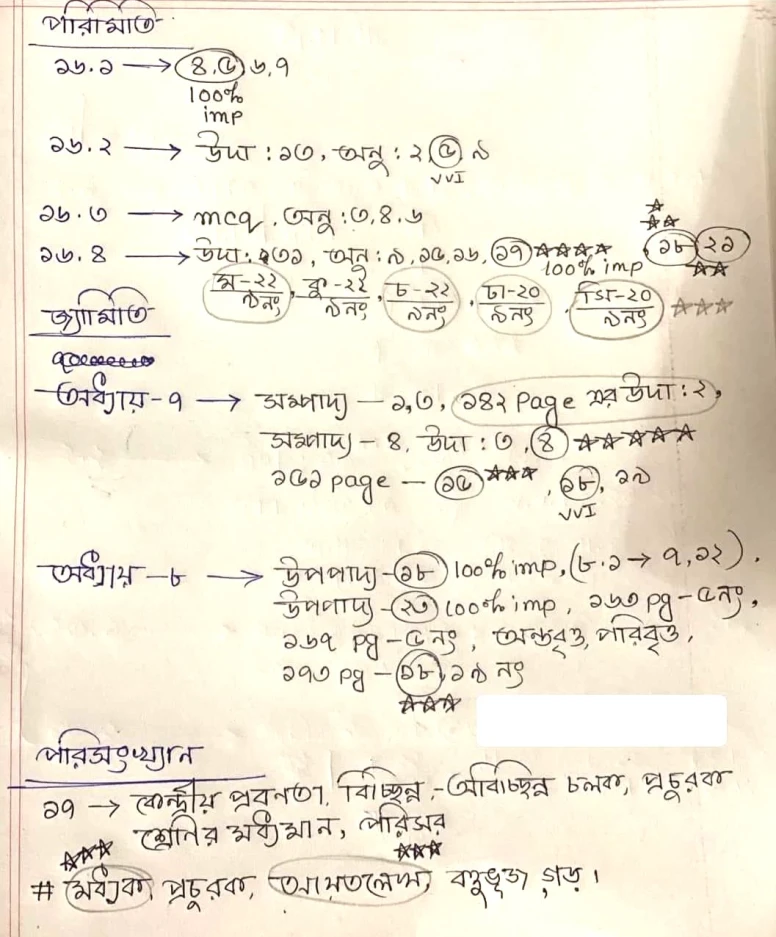 পরিমিতি
১৬.১ → ৪,৫ ৬,৭
100%
imp
১৬.২ → উদা : ১৩, অনু : ২ ৫ ৯
VVI
১৬.৩ → mcq, অনু : ৩,৪,৬
১৬.৪ → উদা : ৩১, অনু : ৯, ১৫, ১৬, ১৭ ☆☆☆☆ 100% imp, ১৮ ২১
ম-২২ ৯নং, কু-২২ ৯নং, চ-২২ ৯নং, ঢা-২০ ৯নং, সি-২০ ৯নং ☆☆☆
জ্যামিতি
অধ্যায়-৭ → সম্পাদ্য – ১,৩, ১৪২ page এর উদা : ২,
সম্পাদ্য – ৪, উদা : ৩, ৪ ☆☆☆☆☆
১৫১ page – ১৫ ☆☆☆, ১৮, ১৯
VVI
অধ্যায়-৮ → উপপাদ্য-১৮ 100% imp, (৮.১ → ৭,১২),
উপপাদ্য-২৩ 100% imp, ১৬৩ pg-৫নং,
১৬৭ pg-৫নং, অন্তবৃত্ত, পরিবৃত্ত,
১৭৩ pg-১৮, ১৯ নং
☆☆☆
পরিসংখ্যান
১৭ → কেন্দ্রীয় প্রবনতা, বিচ্ছিন্ন-অবিচ্ছিন্ন চলক, প্রচুরক
শ্রেনির মধ্যমান, পরিসর
☆☆☆ ☆☆☆
# মধ্যক, প্রচুরক, আয়তলেখ, বহুভুজ, গড়।